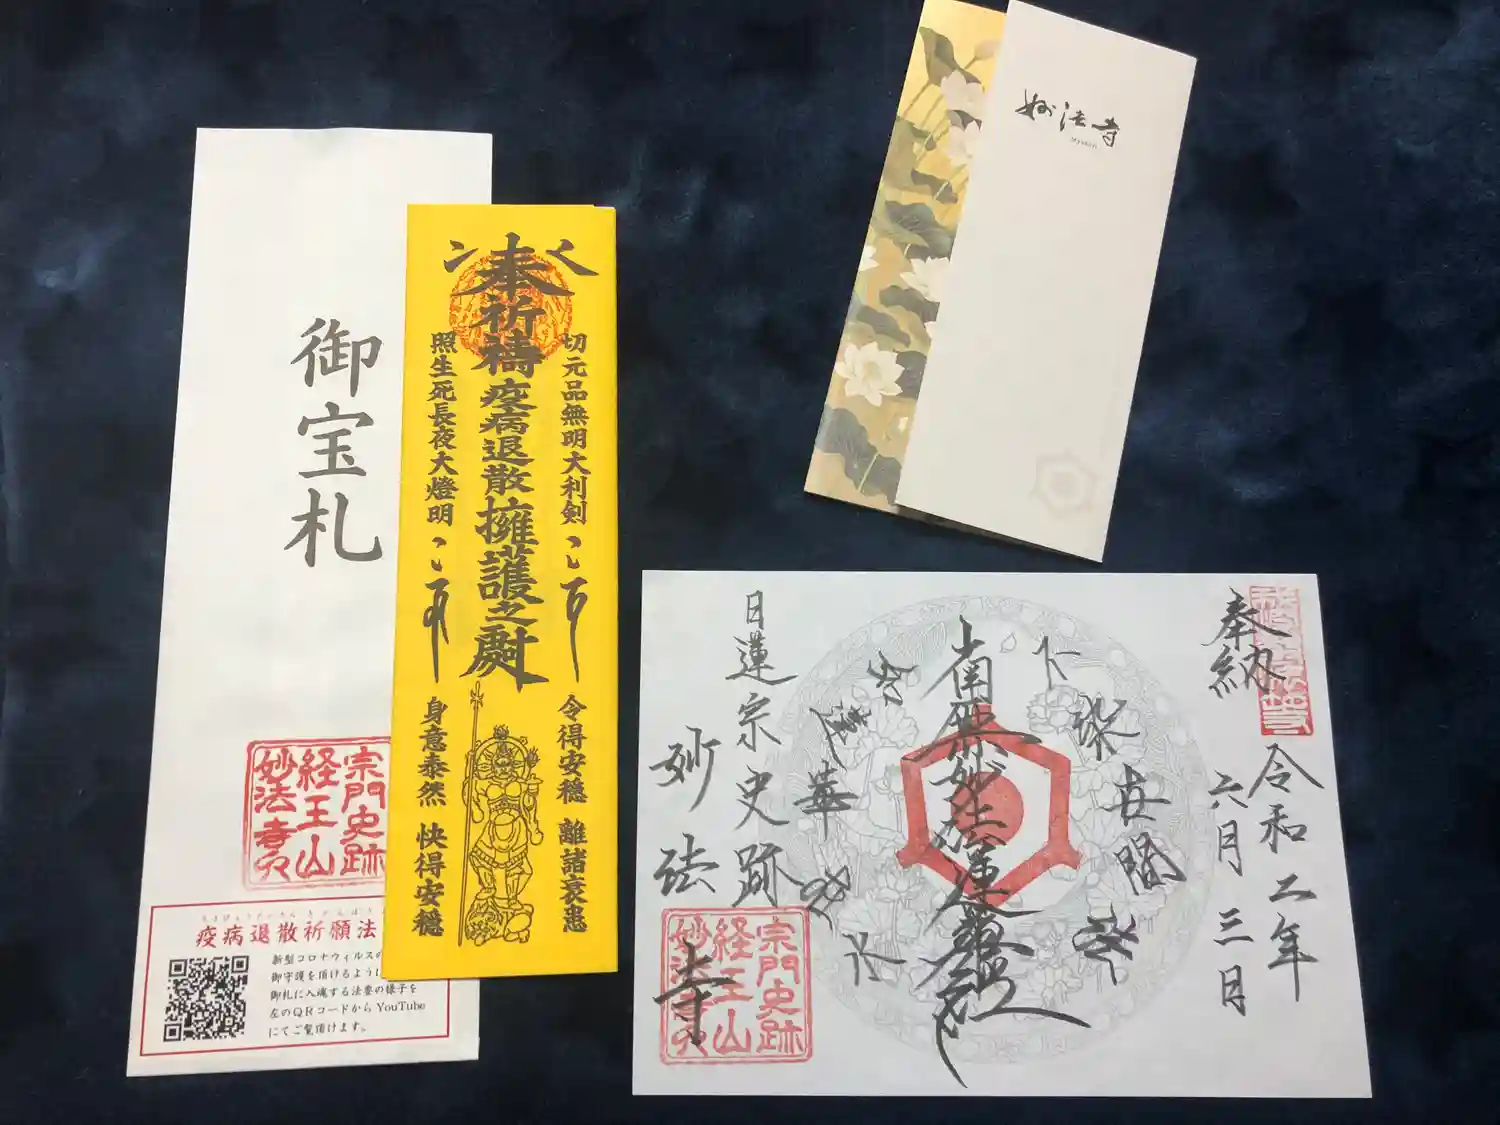 御宝札
宗門史跡
経王山
妙法寺
疫病退散祈願法
新型コロナウィルスの
御守護を頂けるように
御札に入魂する法要の様子を
左のQRコードからYouTube
にてご覧頂けます。
奉祈禱疫病退散擁護之
切元品無明大利剣
照生死長夜大燈明
令得安穏 離諸衰患
身意泰然 快得安穏
妙法寺
Myohoji
奉納
令和二年
六月三日
南無妙法蓮華経
不染世間法
如蓮華
日蓮宗史跡
妙法寺
宗門史跡
経王山
妙法寺